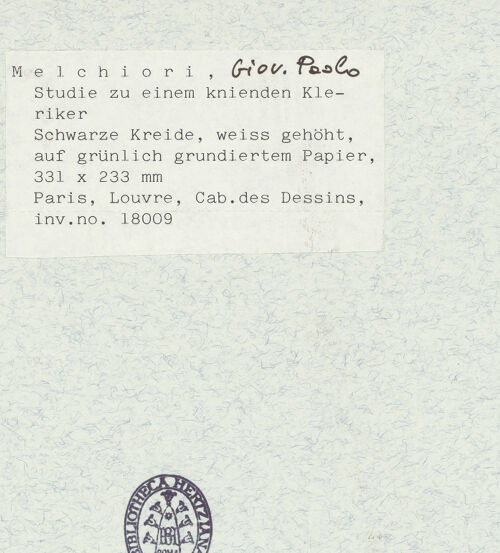 Melchiori, Giov. Paolo
Studie zu einem knienden Kle-
riker
Schwarze Kreide, weiss gehöht,
auf grünlich grundiertem Papier,
331 x 233 mm
Paris, Louvre, Cab.des Dessins,
inv.no. 18009
BIBLIOTHECA HERTZIANA